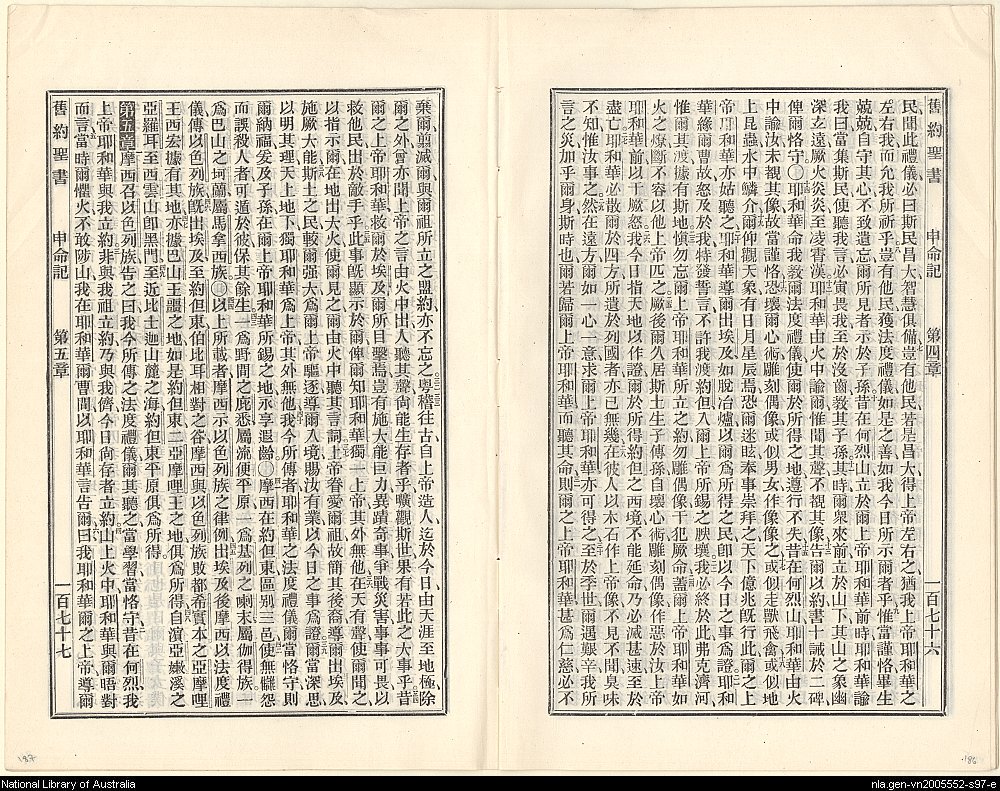 舊約聖書 申命記 第四章 一百七十六
民聞此禮儀必曰斯民昌大智慧俱備豈有他民若是昌大得上帝左右之猶我上帝耶和華之
左右我而允我所祈乎豈有他民獲法度禮儀如是之善如我今日所示爾者乎惟當謹恪畢生
兢兢自守其心不致遺忘爾所見者示於子孫昔在何烈山立於爾上帝耶和華前時耶和華諭
我曰當集斯民使聽我言必寅畏我至於沒齒教其子孫其時爾衆來前立於山下其山之象幽
深玄遠厥火炎炎至凌霄漢耶和華由火中諭爾惟聞其聲不覩其像告爾以約書十誡於二碑
俾爾恪守〇耶和華命我教爾法度禮儀使爾於所得之地遵行不失昔在何烈山耶和華由火
中諭汝未覩其像故當謹恪恐壞爾心術雕刻偶像或似男女作像像之或似走獸飛禽或似地
上昆蟲水中鱗介爾仰觀天象有日月星辰焉恐爾迷眩奉事崇拜之天下億兆旣行此爾之上
帝耶和華亦姑聽之耶和華導爾出埃及如脫冶爐以爾爲所得之民卽以今日之事爲證耶和
華緣爾曹故怒及於我特發誓言不許我渡約但入爾上帝所錫之腴壤我必終於此弗克濟河
惟爾其渡據有斯地愼勿忘爾上帝耶和華所立之約勿雕偶像干犯厥命蓋爾上帝耶和華如
火之燎斷不容以他上帝匹之厥後爾久居斯土生子傳孫自壞心術雕刻偶像作惡於汝上帝
耶和華前以干厥怒我今日指天地以作證爾於所得約但之西境不能延命乃必滅甚速至於
盡亡耶和華必散爾於四方所遺於列國者亦已無幾在彼人以木石作上帝像不見不聞臭味
不知惟汝事之然在遠方爾如一心一意求爾上帝耶和華亦可得之至於季世爾遇艱辛我所
言之災加乎爾身斯時也爾若歸爾上帝耶和華而聽其命則爾之上帝耶和華甚爲仁慈必不
棄爾翦滅爾與爾祖所立之盟約亦不忘之粤稽往古自上帝造人迄於今日由天涯至地極除
爾之外曾亦聞上帝之言由火中出人聽其聲尙能生存者乎曠觀斯世果有若此之大事乎昔
爾之上帝耶和華救爾於埃及爾所目擊焉豈有施大能巨力異蹟奇事爭戰災害事事可畏以
救他民出於敵手乎此事旣顯示於爾俾爾知耶和華獨一上帝其外無他在天有聲使爾聞之
以指示爾在地出大火使爾見之爾由火中聽其言詞上帝眷愛爾祖故簡其後裔導爾出埃及
施厥大能斯土之民較爾强大爲爾上帝驅逐導爾入境賜汝有業以今日之事爲證爾當深思
以明其理天上地下獨耶和華爲上帝其外無他我今所傳者耶和華之法度禮儀爾當恪守則
爾納福爰及子孫在爾上帝耶和華所錫之地永享遐齡〇摩西在約但東區別三邑使無讎怨
而誤殺人者可遁於彼保其餘生一爲野間之庇悉屬流便平原一爲基列之喇末屬伽得族一
爲巴山之坷蘭屬馬拿西族〇以上所載者摩西示以色列族之律例出埃及後摩西以法度禮
儀傳以色列族旣出埃及至約但東伯比耳相對之谷摩西與以色列族敗都希實本之亞摩哩
王西宏據有其地亦據巴山王噩之地如是約但東二亞摩哩王之地俱爲所得自濱亞嫩溪之
亞羅耳至西雲山卽黑門至近比士迦山麓之海約但東平原俱爲所得
第五章 摩西召以色列族告之曰我今所傳之法度禮儀爾其聽之當學習當恪守昔在何烈我
上帝耶和華與我立約非與我祖立約乃與我儕今日尙存者立約山上火中耶和華與爾晤對
而言當時爾懼火不敢陟山我在耶和華爾曹間以耶和華言告爾曰我耶和華爾之上帝導爾
舊約聖書 申命記 第五章 一百七十七
187
186
National Library of Australia
nla.gen-vn2005552-s97-e